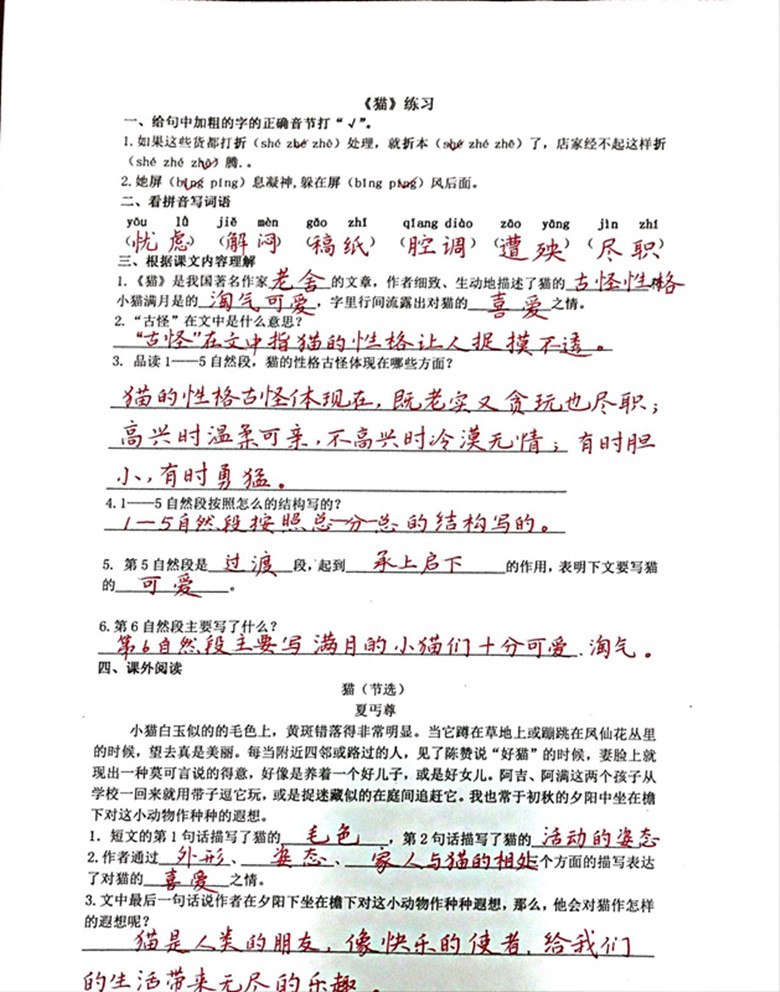 《猫》练习
一、给句中加粗的字的正确音节打“√”。
1.如果这些货都打折（shé zhé zhē）处理，就折本（shé zhé zhē）了，店家经不起这样折
（shé zhé zhē）腾.。
2.她屏（bǐng píng）息凝神,躲在屏（bǐng píng）风后面。
二、看拼音写词语
yōu lǜ jiě mèn gǎo zhǐ qiāng diào zāo yāng jìn zhí
（忧虑）（解闷）（稿纸）（腔调）（遭殃）（尽职）
三、根据课文内容理解
1.《猫》是我国著名作家老舍的文章，作者细致、生动地描述了猫的古怪性格
小猫满月是的淘气可爱，字里行间流露出对猫的喜爱之情。
2.“古怪”在文中是什么意思?
“古怪”在文中指猫的性格让人捉摸不透。
3. 品读1——5自然段，猫的性格古怪体现在哪些方面?
猫的性格古怪体现在，既老实又贪玩也尽职；
高兴时温柔可亲，不高兴时冷漠无情；有时胆
小，有时勇猛。
4.1——5自然段按照怎么的结构写的?
1—5自然段按照总—分—总的结构写的。
5. 第5自然段是过渡段，起到承上启下的作用,表明下文要写猫
的可爱。
6.第6自然段主要写了什么?
第6自然段主要写满月的小猫们十分可爱.淘气。
四、课外阅读
猫（节选）
夏丏尊
小猫白玉似的的毛色上，黄斑错落得非常明显。当它蹲在草地上或蹦跳在凤仙花丛里
的时候，望去真是美丽。每当附近四邻或路过的人，见了陈赞说“好猫”的时候，妻脸上就
现出一种莫可言说的得意，好像是养着一个好儿子，或是好女儿。阿吉、阿满这两个孩子从
学校一回来就用带子逗它玩，或是捉迷藏似的在庭间追赶它。我也常于初秋的夕阳中坐在檐
下对这小动物作种种的遐想。
1. 短文的第1句话描写了猫的毛色，第2句话描写了猫的活动的姿态
2.作者通过外形、姿态、家人与猫的相处个方面的描写表达
了对猫的喜爱之情。
3.文中最后一句话说作者在夕阳下坐在檐下对这小动物作种种遐想，那么，他会对猫作怎样
的遐想呢?
猫是人类的朋友，像快乐的使者，给我们
的生活带来无尽的乐趣。